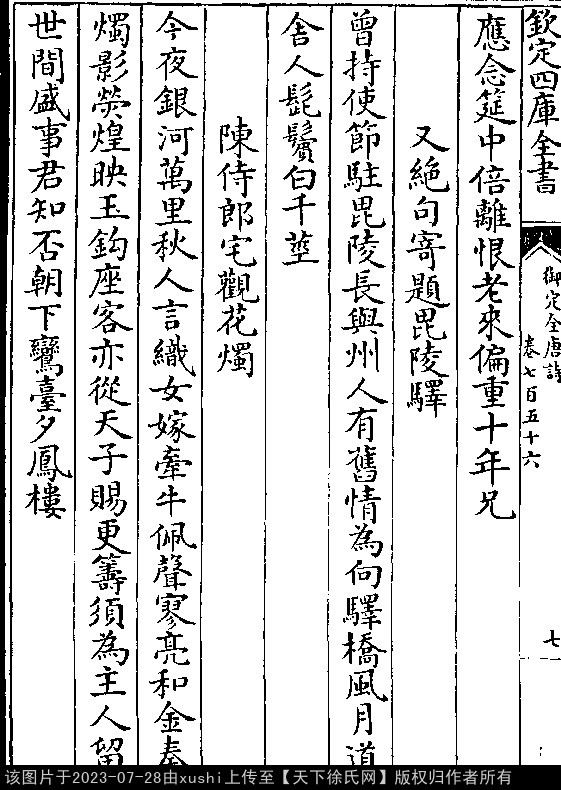 欽定四庫全書
御定全唐詩
卷七百五十六
七
應念筵中倍離恨老來偏重十年兄
又絕句寄題毘陵驛
曾持使節駐毘陵長與州人有舊情為向驛橋風月道
舍人髭鬢白千莖
陳侍郎宅觀花燭
今夜銀河萬里秋人言織女嫁牽牛佩聲寥亮和金奏
燭影熒煌映玉鈎座客亦從天子賜更籌須為主人留
世間盛事君知否朝下鸞臺夕鳳樓
该图片于2023-07-28由xushi上传至【天下徐氏网】版权归作者所有